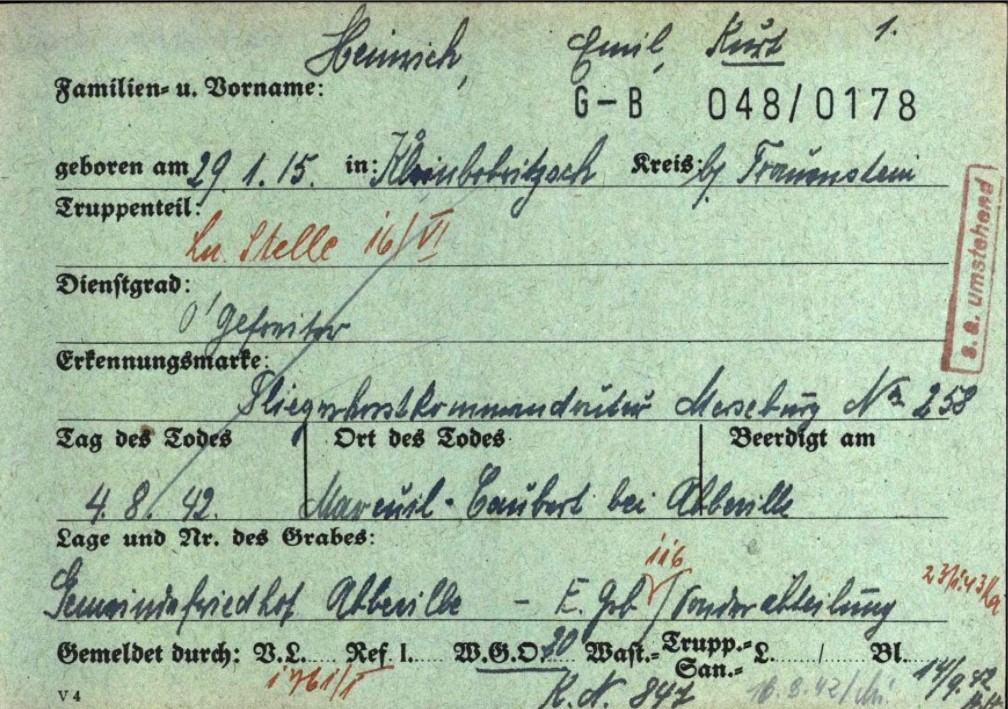 Heinrich, Emil, Kurt 1.
Familien- u. Vorname:
G-B 048/0178
geboren am 29.1.15. in: Kleinbobritzsch Kreis: b/ Frauenstein
Truppenteil:
Ln. Stelle 16/VI
Dienstgrad:
O'Gefreiter
s. a. umstehend
Erkennungsmarke:
Fliegerhorstkommandantur Merseburg No 258
Tag des Todes Ort des Todes Beerdigt am
4. 8. 42. Mareuil-Caubert bei Abbeville
Lage und Nr. des Grabes:
116
Gemeindefriedhof Abbeville - E. Grb / Sonderabteilung
Gemeldet durch: V.L..... Ref. I..... W.G.O 20 Wast.- Trupp.- San.- L......./ Bl.
1761/I
V 4 K. N. 847 16.9.42/ 14/9.42